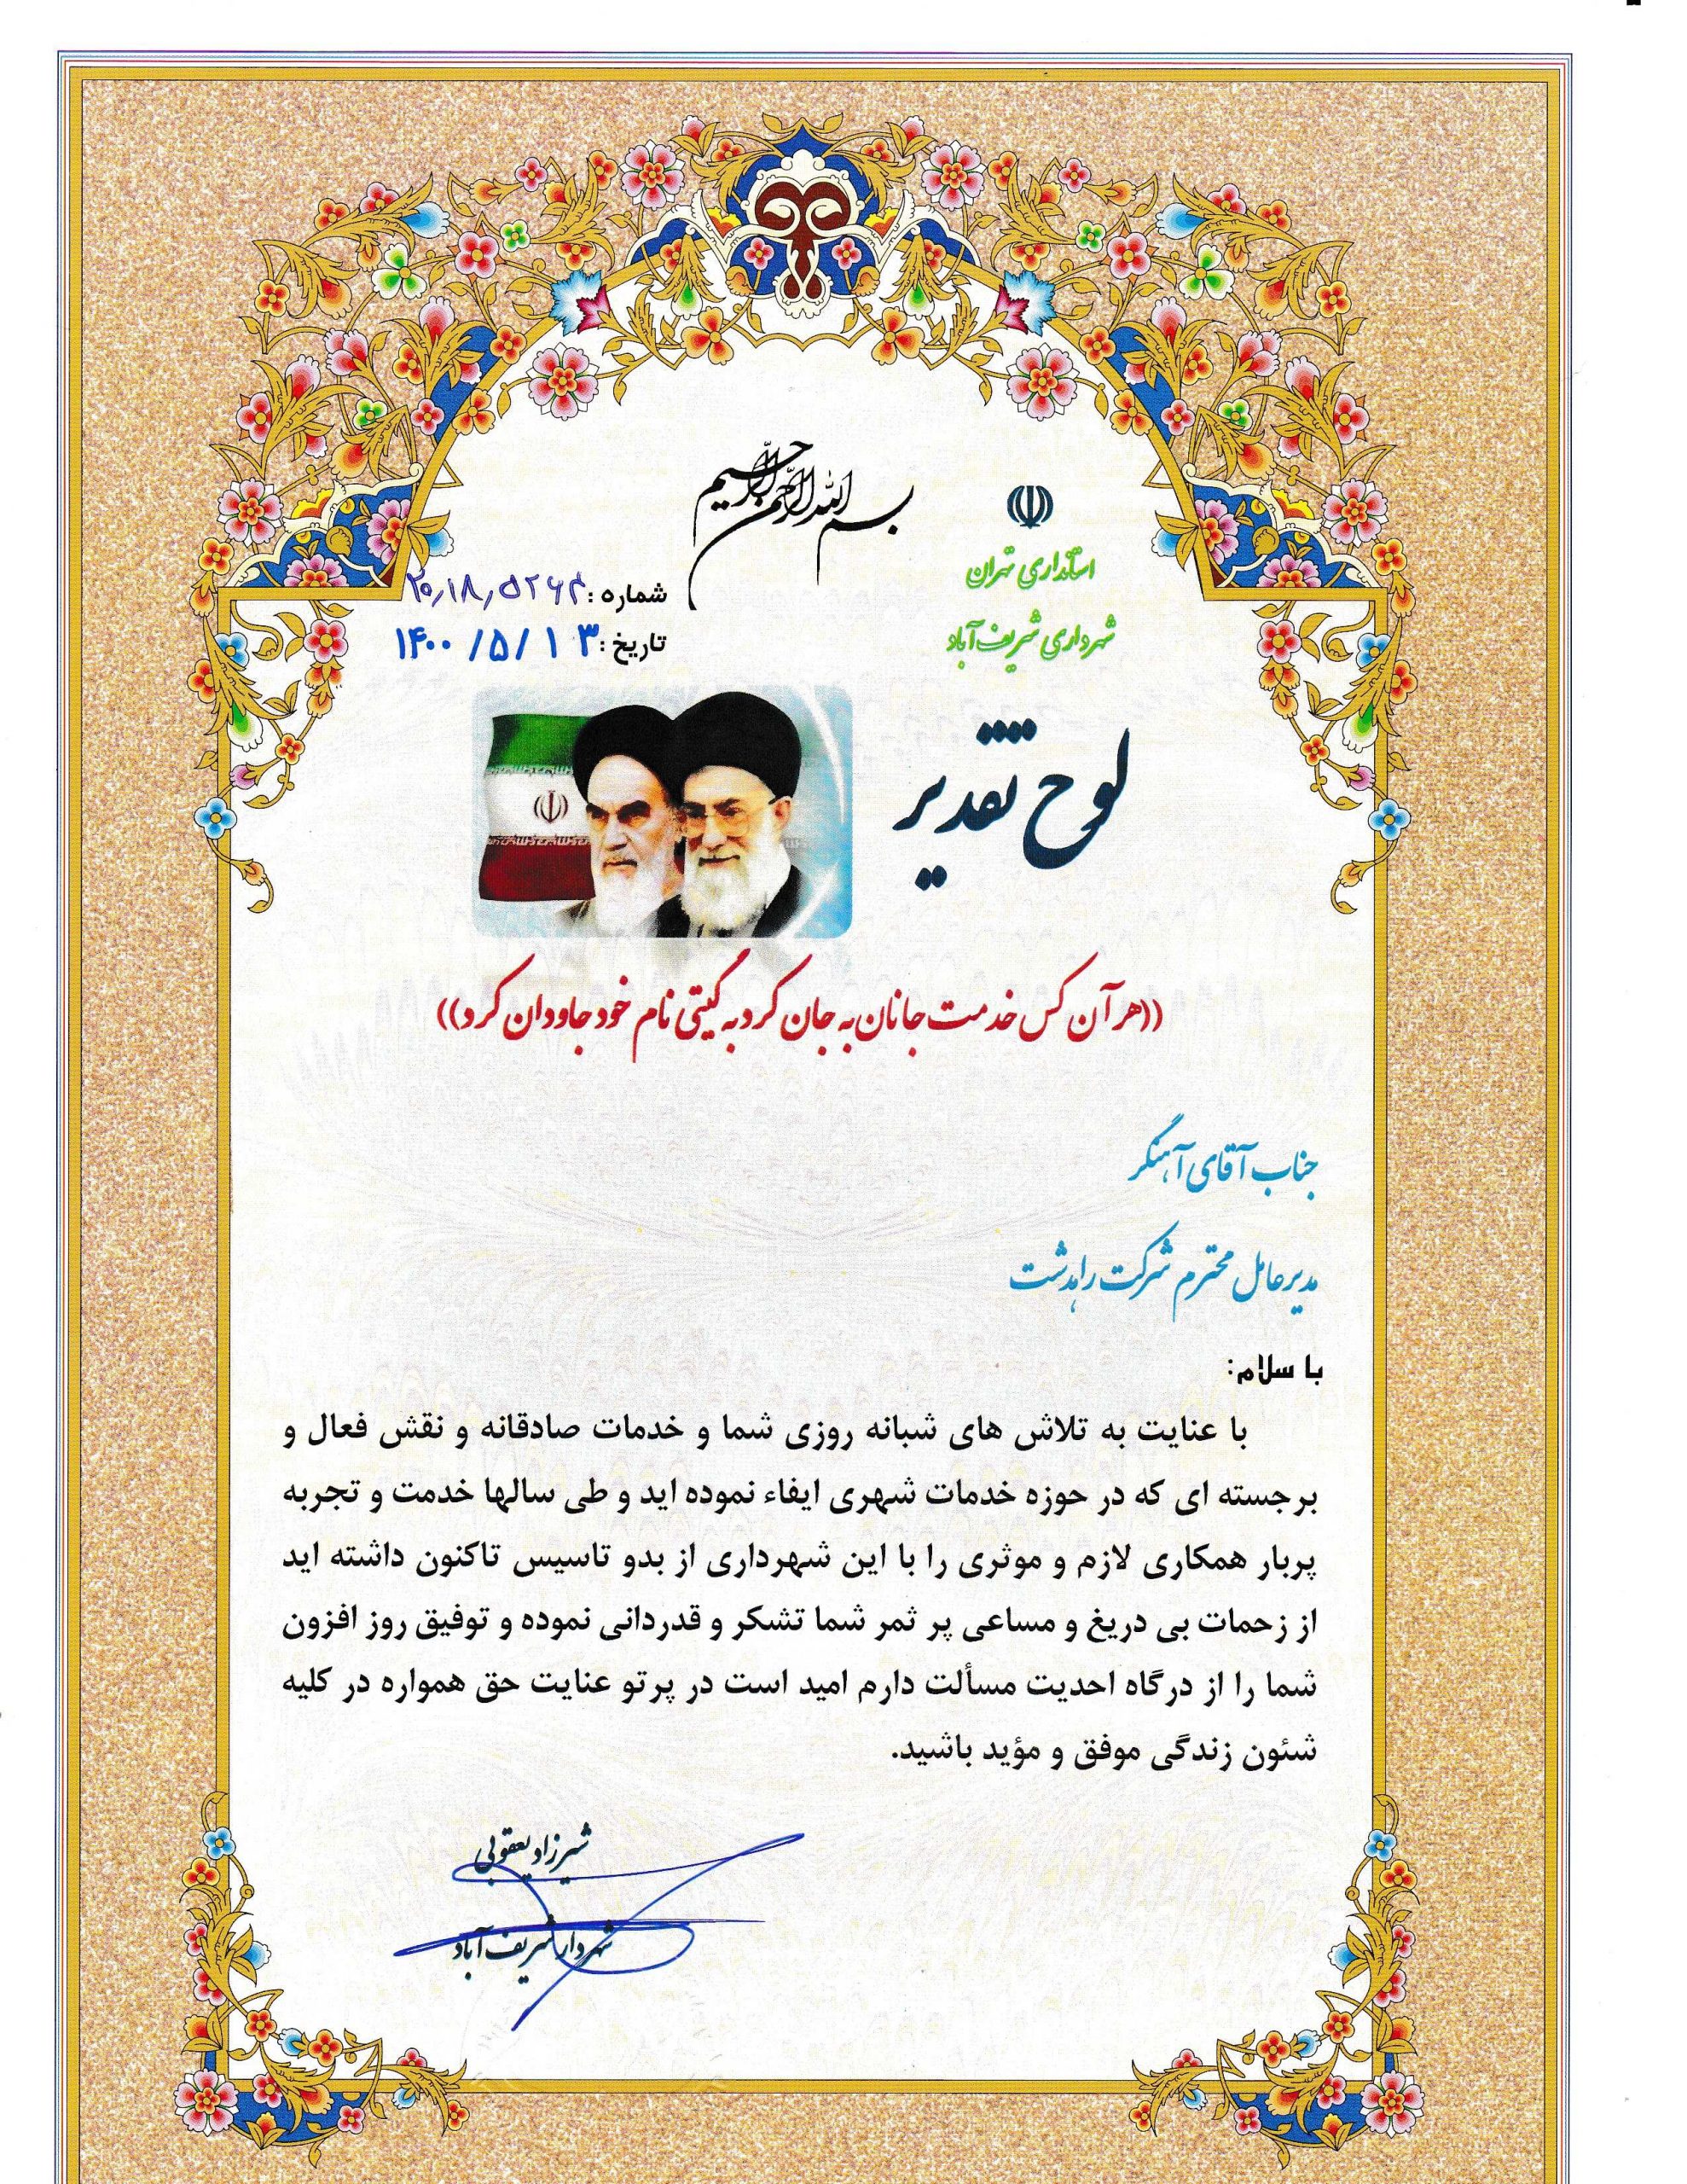 بسم الله الرحمن الرحیم
استانداری تهران
شهرداری شریف آباد
شماره: ۲۰,۱۸,۵۲۶۴
تاریخ: ۱۴۰۰/۵/۱۳
لوح تقدیر
((هر آن کس خدمت جانان به جان کرد به گیتی نام خود جاودان کرد))
جناب آقای آهنگر
مدیرعامل محترم شرکت راهدشت
با سلام:
با عنایت به تلاش های شبانه روزی شما و خدمات صادقانه و نقش فعال و
برجسته ای که در حوزه خدمات شهری ایفاء نموده اید و طی سالها خدمت و تجربه
پربار همکاری لازم و موثری را با این شهرداری از بدو تاسیس تاکنون داشته اید
از زحمات بی دریغ و مساعی پر ثمر شما تشکر و قدردانی نموده و توفیق روز افزون
شما را از درگاه احدیت مسألت دارم امید است در پرتو عنایت حق همواره در کلیه
شئون زندگی موفق و مؤید باشید.
شیرزاد یعقوبی
شهردار شریف آباد